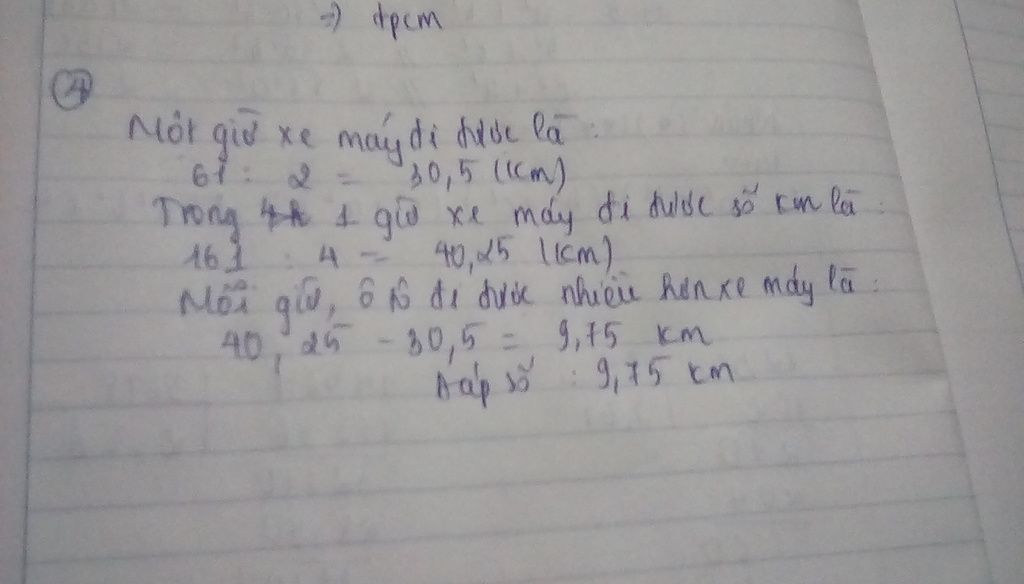 =) đpcm
4
Một giờ xe máy đi được là:
61 : 2 = 30,5 (km)
Trong 1 giờ xe máy đi được số km là:
161 : 4 = 40,25 (km)
Mỗi giờ, ô tô đi được nhiều hơn xe máy là:
40,25 - 30,5 = 9,75 km
Đáp số : 9,75 km